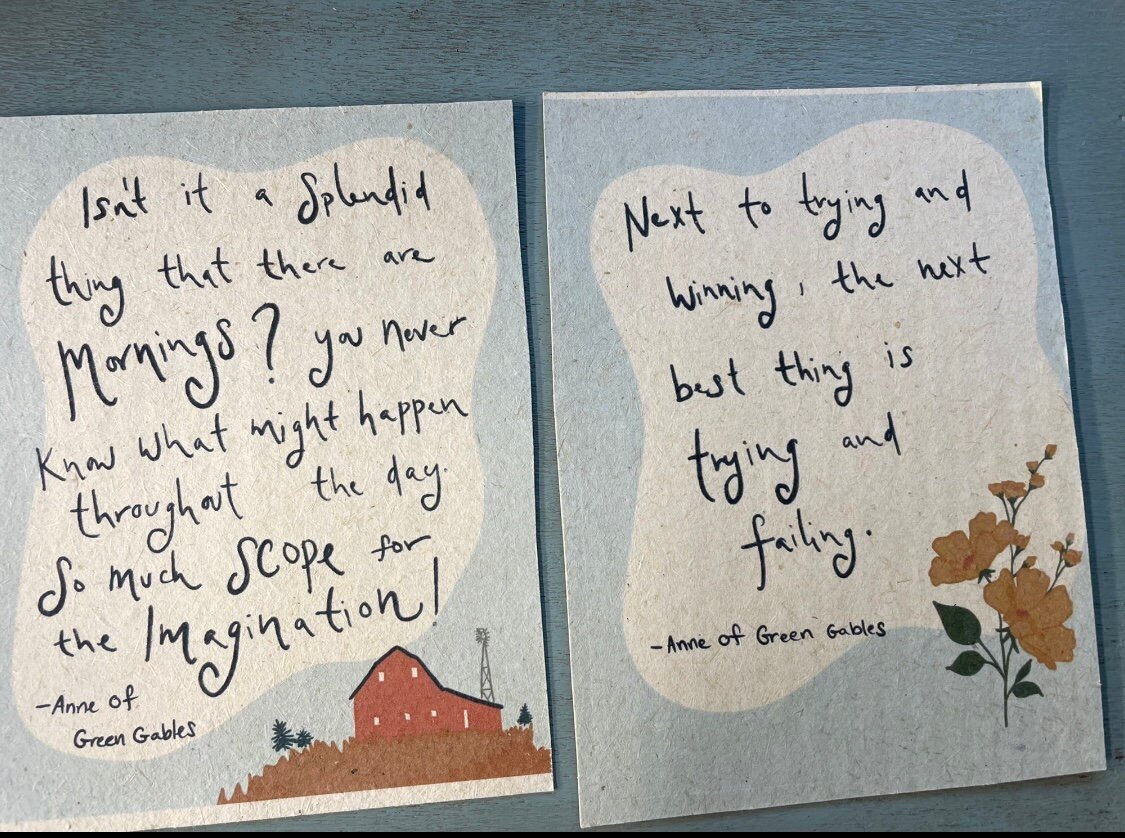 Isn't it a Splendid
thing that there are
Mornings? you never
Know what might happen
throughout the day.
So much SCOPE for
the Imagination!
-Anne of
Green Gables
Next to trying and
Winning, the next
best thing is
trying and
failing.
-Anne of Green Gables